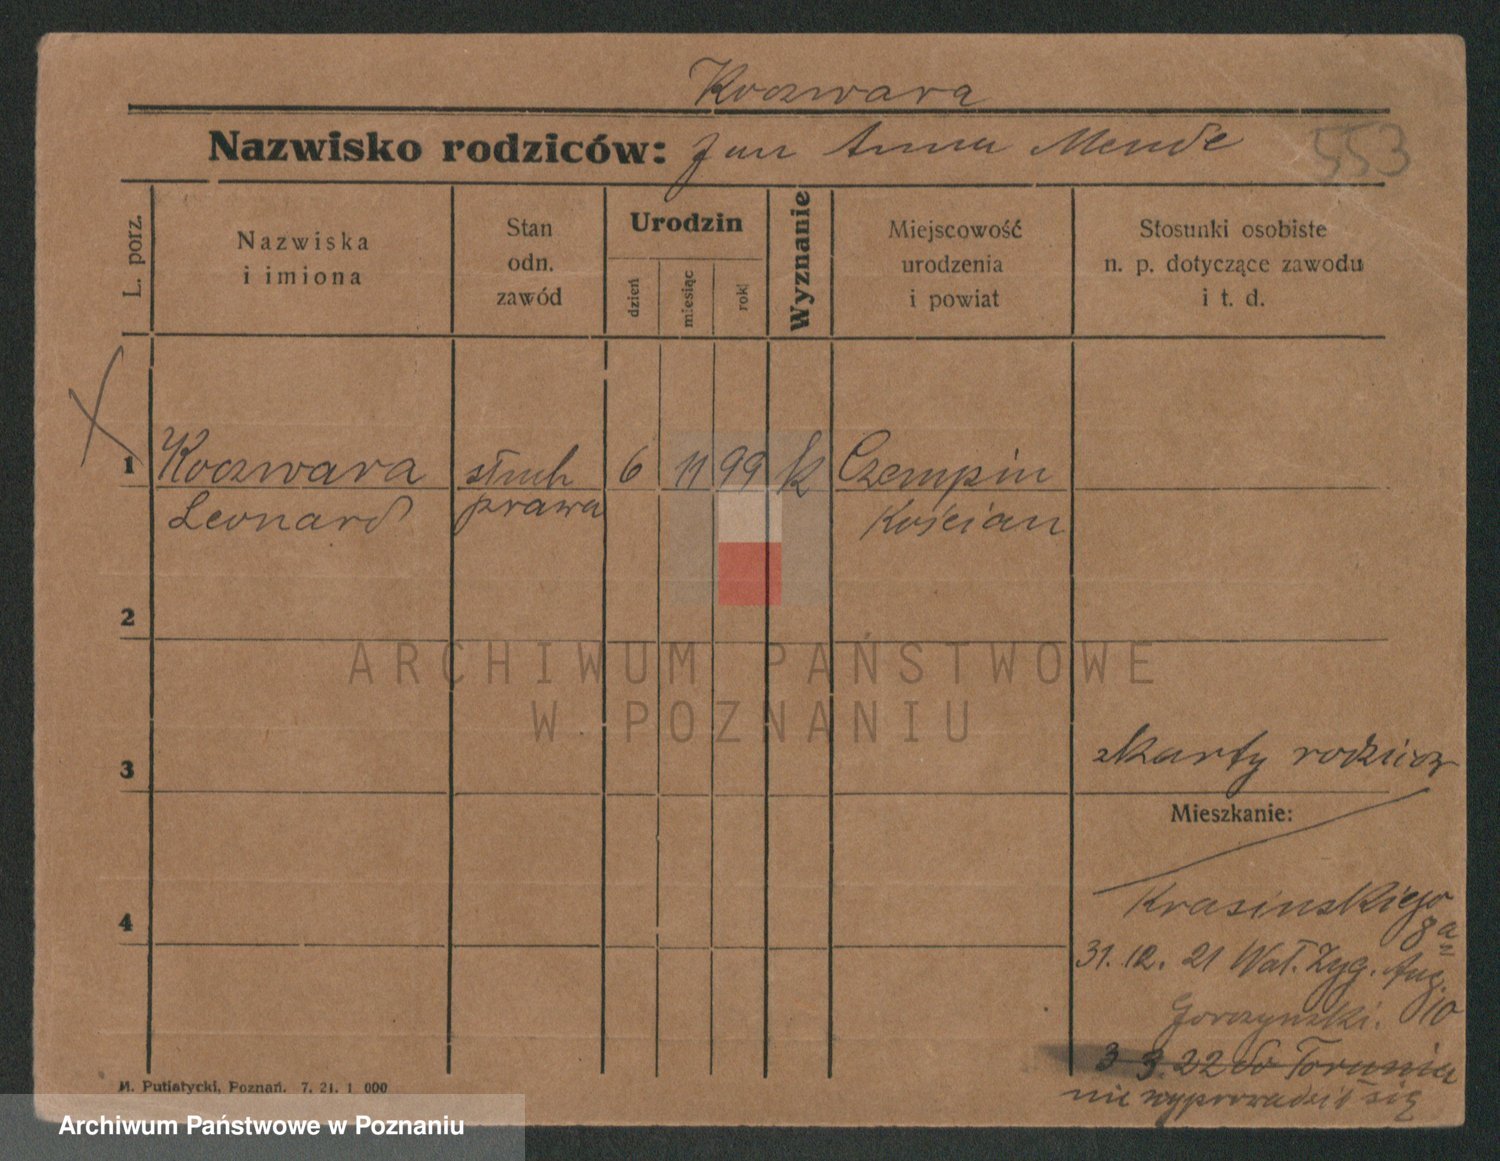 Koczwara
Nazwisko rodziców: Jan Anna Mende
553
L. porz.
Nazwiska
i imiona
Stan
odn.
zawód
Urodzin
dzień
miesiąc
rok
Wyznanie
Miejscowość
urodzenia
i powiat
Stosunki osobiste
n. p. dotyczące zawodu
i t. d.
1 Koczwara słuch 6 11 99 k Czempin
Leonard prawa Kościan
2
ARCHIWUM PAŃSTWOWE
W POZNANIU
3
z karty rodziców
Mieszkanie:
4
Krasinskiego
8a
31. 12. 21 Wał. Zyg. Aug.
Gorczynski. 10
3 3. 22 do Torunia
nie wyprowadził się
M. Putiatycki, Poznań. 7. 21. 1 000
Archiwum Państwowe w Poznaniu